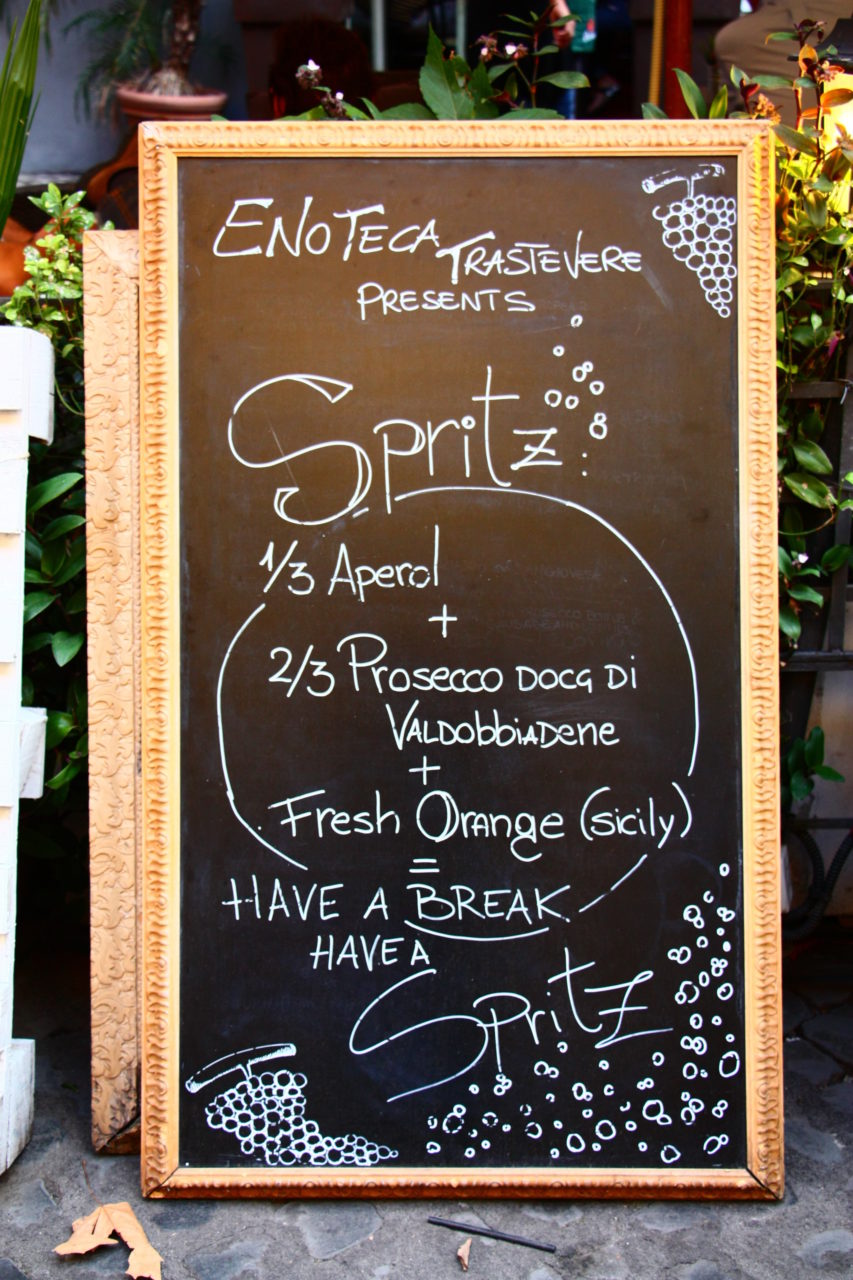 ENOTECA TRASTEVERE
PRESENTS
Spritz
1/3 Aperol
+
2/3 Prosecco DOCG Di
VALDobbiaDene
+
Fresh Orange (sicily)
=
HAVE A BREAK
HAVE A
Spritz